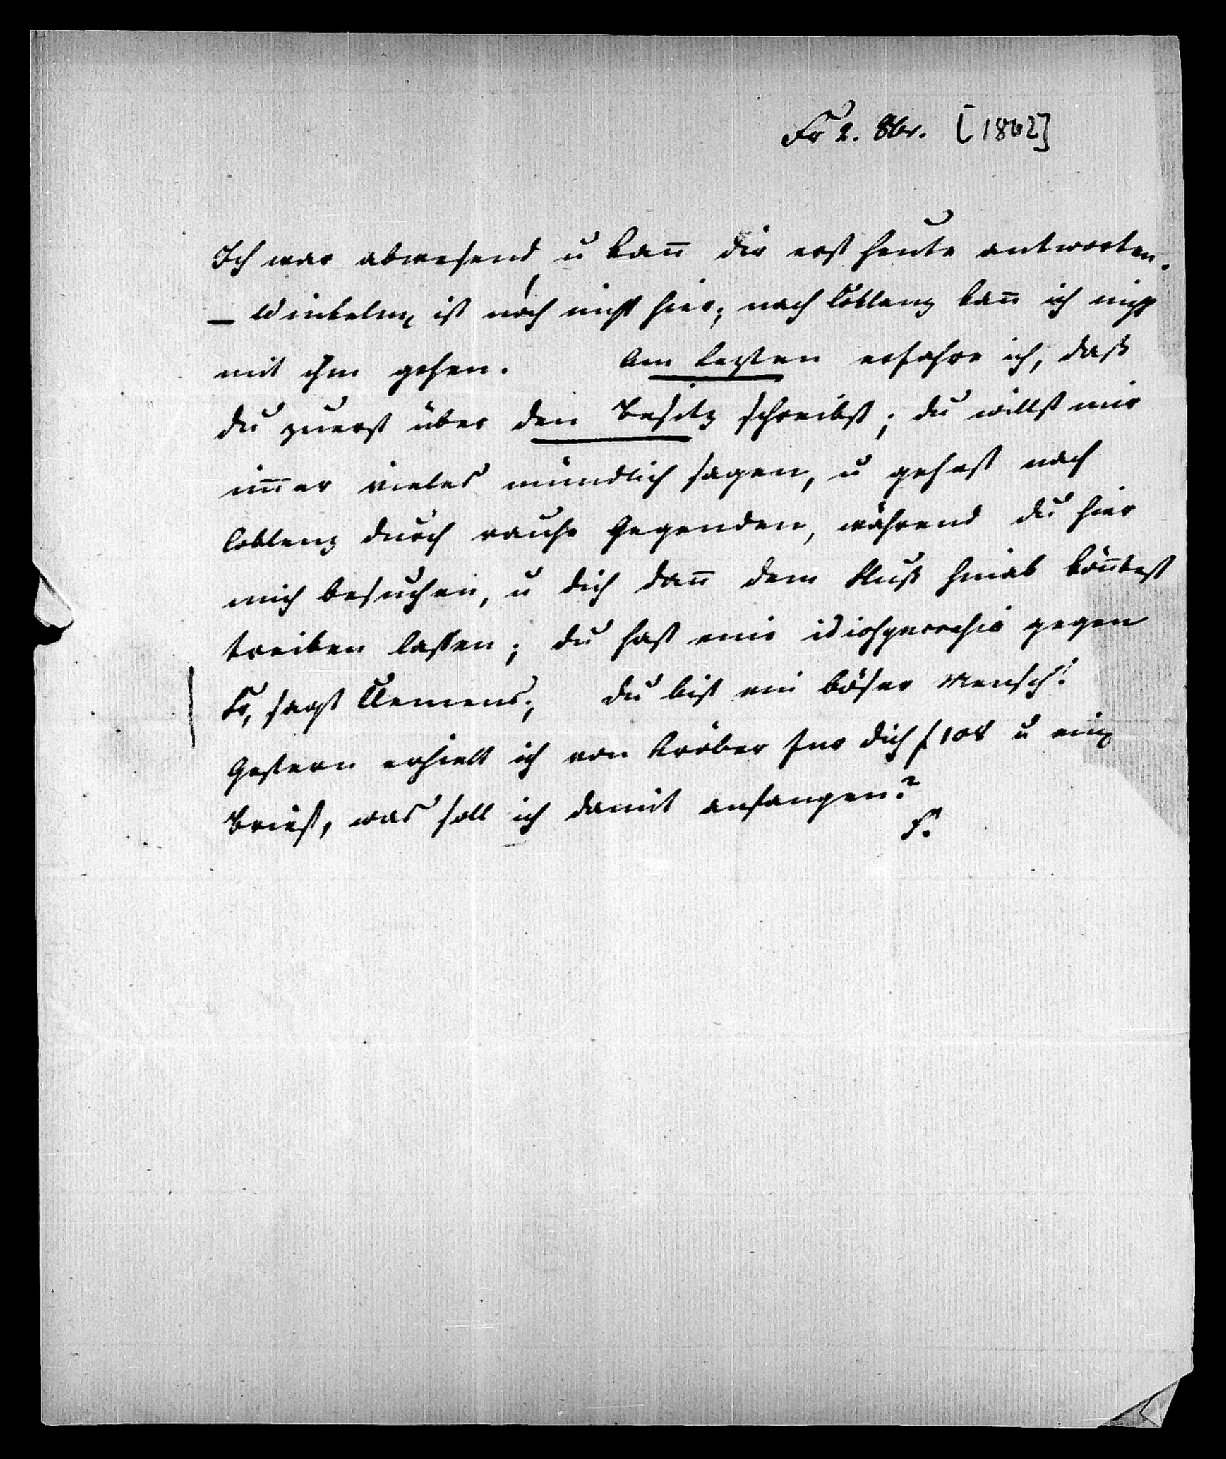 Fr 2. 8br. [1802]
Ich war abwesend, u kan̄ dir erst heute antworten.
– Winkelm, ist noch nicht hier; nach Coblenz kan̄ ich nicht
mit ihm gehen. Am lezten erfahre ich, daß
du zuerst über den Besitz schreibst; du willst mir
im̄er vieles mündlich sagen, u gehest nach
Coblenz durch rauhe Gegenden, während du hier
mich besuchen, u dich dan̄ dem Fluß hinab kön̄test
treiben lassen; du hast eine gegen
Fr, sagt Clemens; du bist ein böser Mensch!
Gestern erhielt ich von Kröber für dich f 108 u ein
Brief, was soll ich damit anfangen?